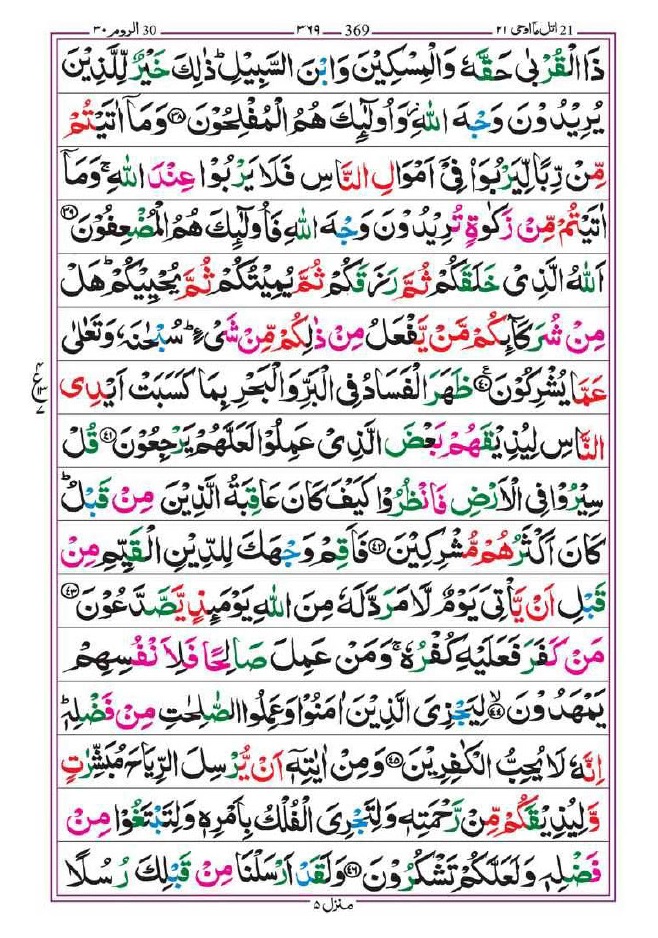 21 اتل مآ اوحی ۲۱ 369 ۳۶۹ 30 الروم ۳۰
ذَا الْقُرْبٰى حَقَّهٗ وَالْمِسْكِيْنَ وَابْنَ السَّبِيْلِ ؕ ذٰلِكَ خَيْرٌ لِّلَّذِيْنَ
يُرِيْدُوْنَ وَجْهَ اللّٰهِ ؗ وَاُولٰٓئِكَ هُمُ الْمُفْلِحُوْنَ ۳۸ وَمَاۤ اٰتَيْتُمْ
مِّنْ رِّبًا لِّيَرْبُوَا۠ فِيْۤ اَمْوَالِ النَّاسِ فَلَا يَرْبُوْا عِنْدَ اللّٰهِ ۚ وَمَاۤ
اٰتَيْتُمْ مِّنْ زَكٰوةٍ تُرِيْدُوْنَ وَجْهَ اللّٰهِ فَاُولٰٓئِكَ هُمُ الْمُضْعِفُوْنَ ۳۹
اَللّٰهُ الَّذِيْ خَلَقَكُمْ ثُمَّ رَزَقَكُمْ ثُمَّ يُمِيْتُكُمْ ثُمَّ يُحْيِيْكُمْ ؕ هَلْ
مِنْ شُرَكَآئِكُمْ مَّنْ يَّفْعَلُ مِنْ ذٰلِكُمْ مِّنْ شَيْءٍ ؕ سُبْحٰنَهٗ وَتَعٰلٰى
عَمَّا يُشْرِكُوْنَ ۴۰ ظَهَرَ الْفَسَادُ فِي الْبَرِّ وَالْبَحْرِ بِمَا كَسَبَتْ اَيْدِي
النَّاسِ لِيُذِيْقَهُمْ بَعْضَ الَّذِيْ عَمِلُوْا لَعَلَّهُمْ يَرْجِعُوْنَ ۴۱ قُلْ
سِيْرُوْا فِي الْاَرْضِ فَانْظُرُوْا كَيْفَ كَانَ عَاقِبَةُ الَّذِيْنَ مِنْ قَبْلُ ؕ
كَانَ اَكْثَرُهُمْ مُّشْرِكِيْنَ ۴۲ فَاَقِمْ وَجْهَكَ لِلدِّيْنِ الْقَيِّمِ مِنْ
قَبْلِ اَنْ يَّاْتِيَ يَوْمٌ لَّا مَرَدَّ لَهٗ مِنَ اللّٰهِ يَوْمَئِذٍ يَّصَّدَّعُوْنَ ۴۳
مَنْ كَفَرَ فَعَلَيْهِ كُفْرُهٗ ۚ وَمَنْ عَمِلَ صَالِحًا فَلِاَنْفُسِهِمْ
يَمْهَدُوْنَ ۙ۴۴ لِيَجْزِيَ الَّذِيْنَ اٰمَنُوْا وَعَمِلُوا الصّٰلِحٰتِ مِنْ فَضْلِهٖ ؕ
اِنَّهٗ لَا يُحِبُّ الْكٰفِرِيْنَ ۴۵ وَمِنْ اٰيٰتِهٖۤ اَنْ يُّرْسِلَ الرِّيَاحَ مُبَشِّرٰتٍ
وَّلِيُذِيْقَكُمْ مِّنْ رَّحْمَتِهٖ وَلِتَجْرِيَ الْفُلْكُ بِاَمْرِهٖ وَلِتَبْتَغُوْا مِنْ
فَضْلِهٖ وَلَعَلَّكُمْ تَشْكُرُوْنَ ۴۶ وَلَقَدْ اَرْسَلْنَا مِنْ قَبْلِكَ رُسُلًا
منزل ۵